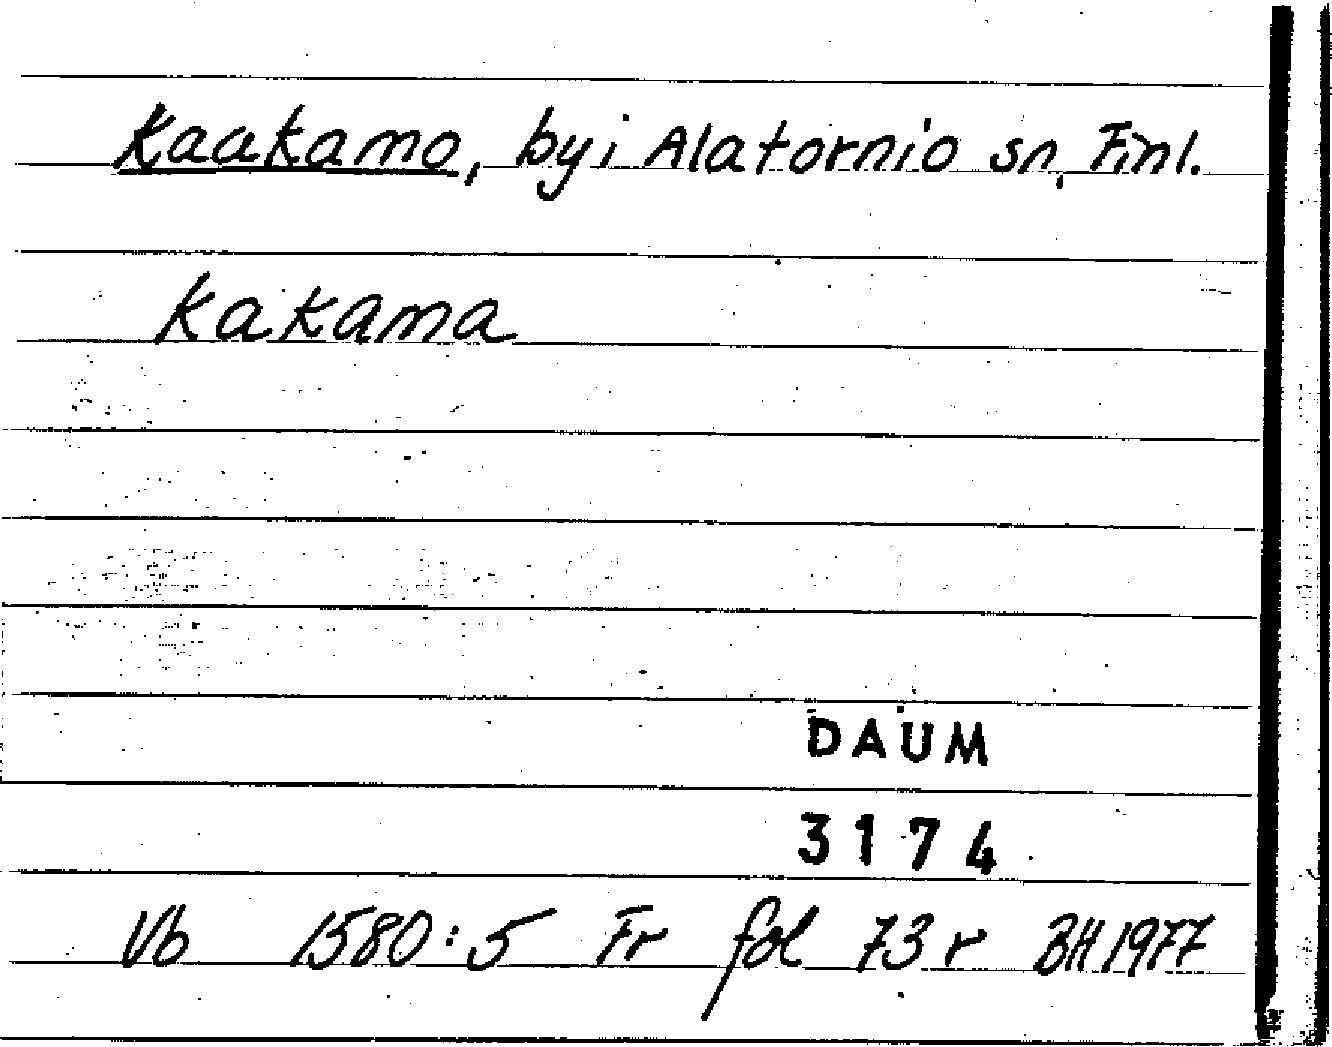 Kaakamo, by i Alatornio sn, Finl.
Kakama
DAUM
3174
Vb 1580:5 Fr fol 73 r BH 1977